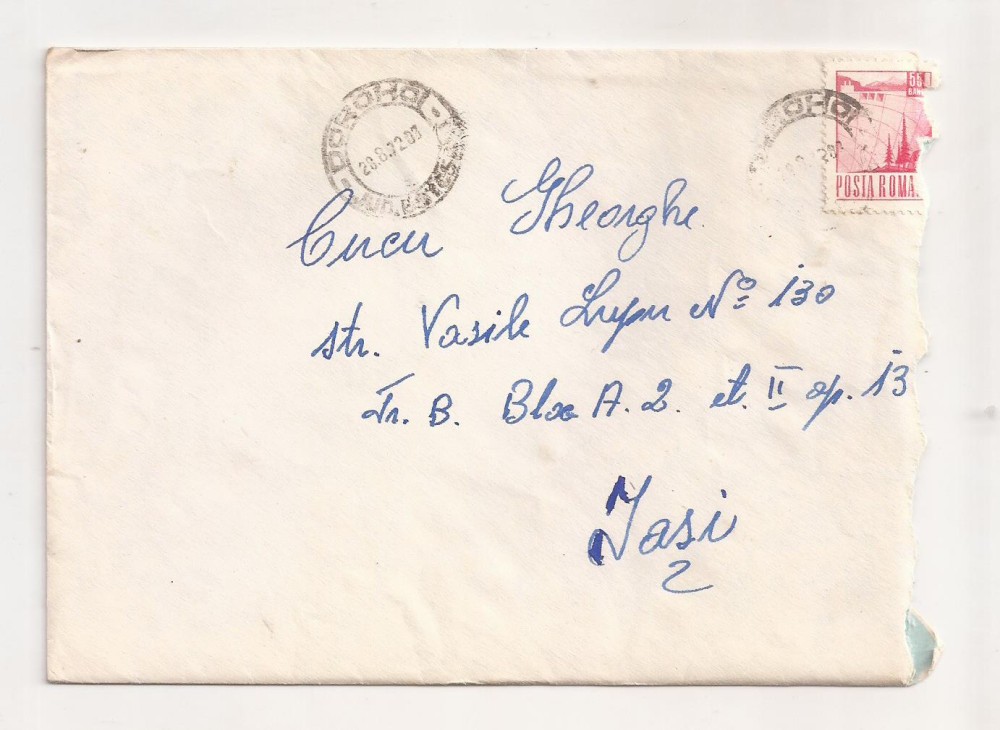 DOROHOI
28.8.72.08
JUD. BOTOȘANI
55
BANI
POSTA ROMA
Cucu Gheorghe
str. Vasile Lupu Nº 130
Tr. B. Bloc A. 2. et. II ap. 13
Iasi
2